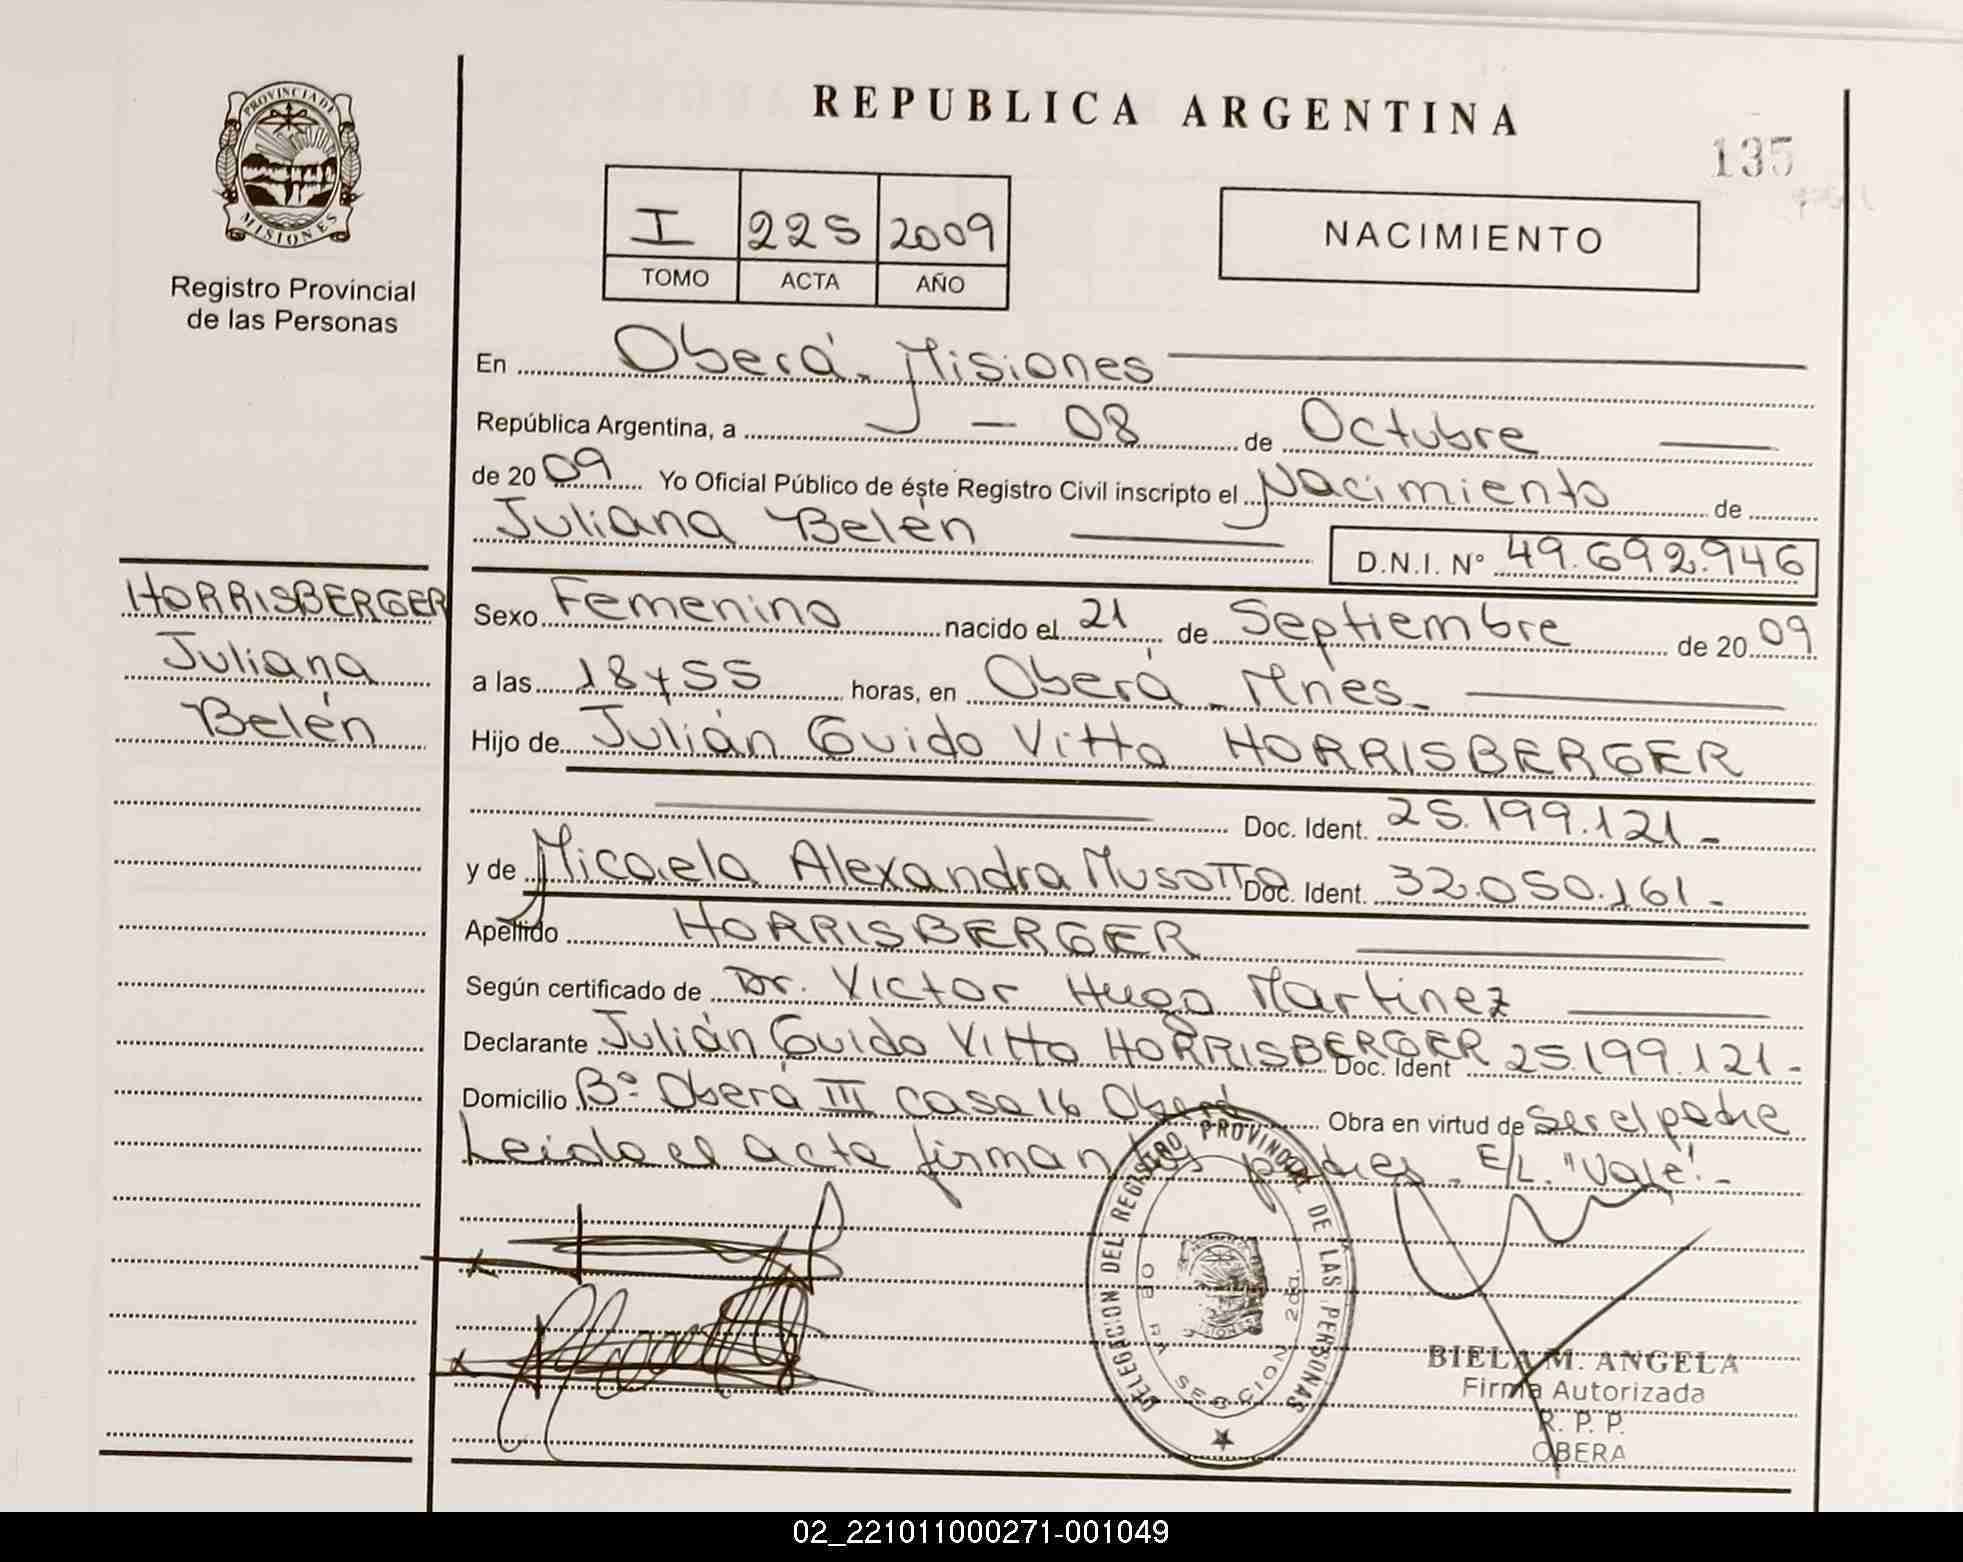 REPUBLICA ARGENTINA
135
PROVINCIA DE
MISIONES
Registro Provincial
de las Personas
I 225 2009
TOMO ACTA AÑO
NACIMIENTO
En Oberá. Misiones
República Argentina, a - 08 de Octubre
de 2009 Yo Oficial Público de éste Registro Civil inscripto el Nacimiento de
Juliana Belén D.N.I. Nº 49.692.946
HORRISBERGER
Juliana
Belén
Sexo Femenino nacido el 21 de Septiembre de 2009
a las 18 y 55 horas, en Oberá - Mnes.
Hijo de Julián Guido Vitto HORRISBERGER
Doc. Ident. 25.199.121.-
y de Micaela Alexandra Musotto Doc. Ident. 32.050.161.-
Apellido HORRISBERGER
Según certificado de Dr. Victor Hugo Martinez
Declarante Julián Guido Vitto HORRISBERGER Doc. Ident 25.199.121.-
Domicilio Bº Oberá III Casa 16 Oberá Obra en virtud de ser el padre
Leida el acta firman los padres. E/L. "Vale".-
DELEGACION DEL REGISTRO PROVINCIAL DE LAS PERSONAS
OBERA SECCION 2da.
BIELA M. ANGELA
Firma Autorizada
R. P. P.
OBERA
02_221011000271-001049